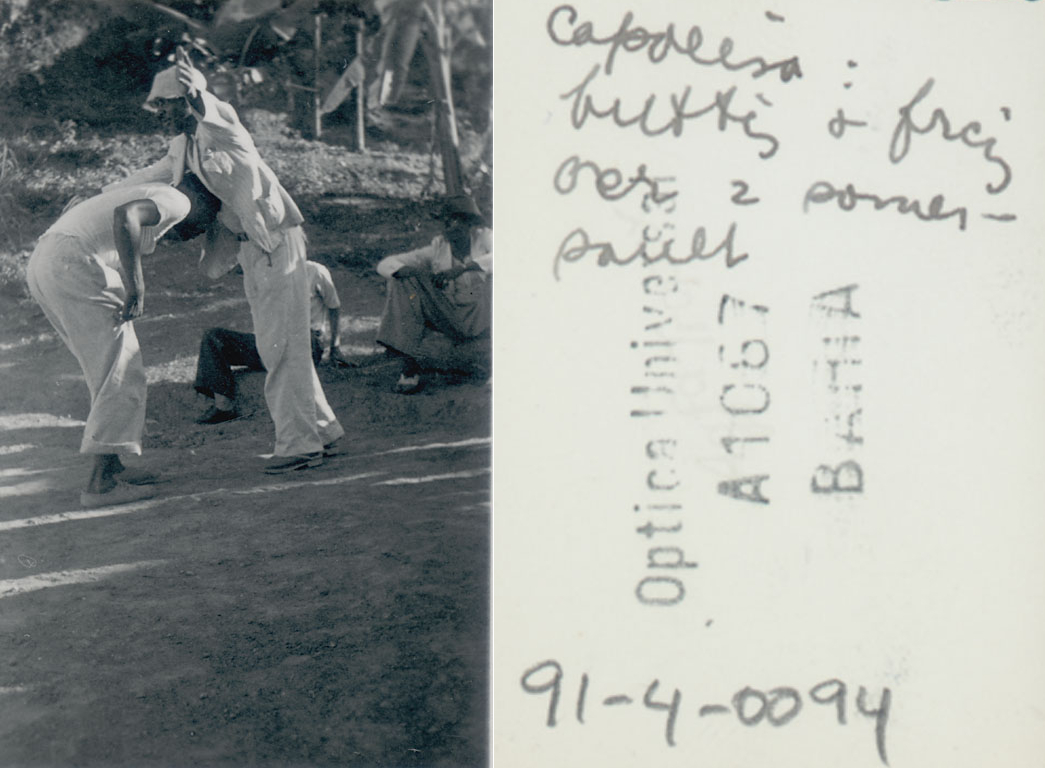 Capoeira :
butting &
over a somer-
sault
Optica Universal
A1067
BAHIA
91-4-0094